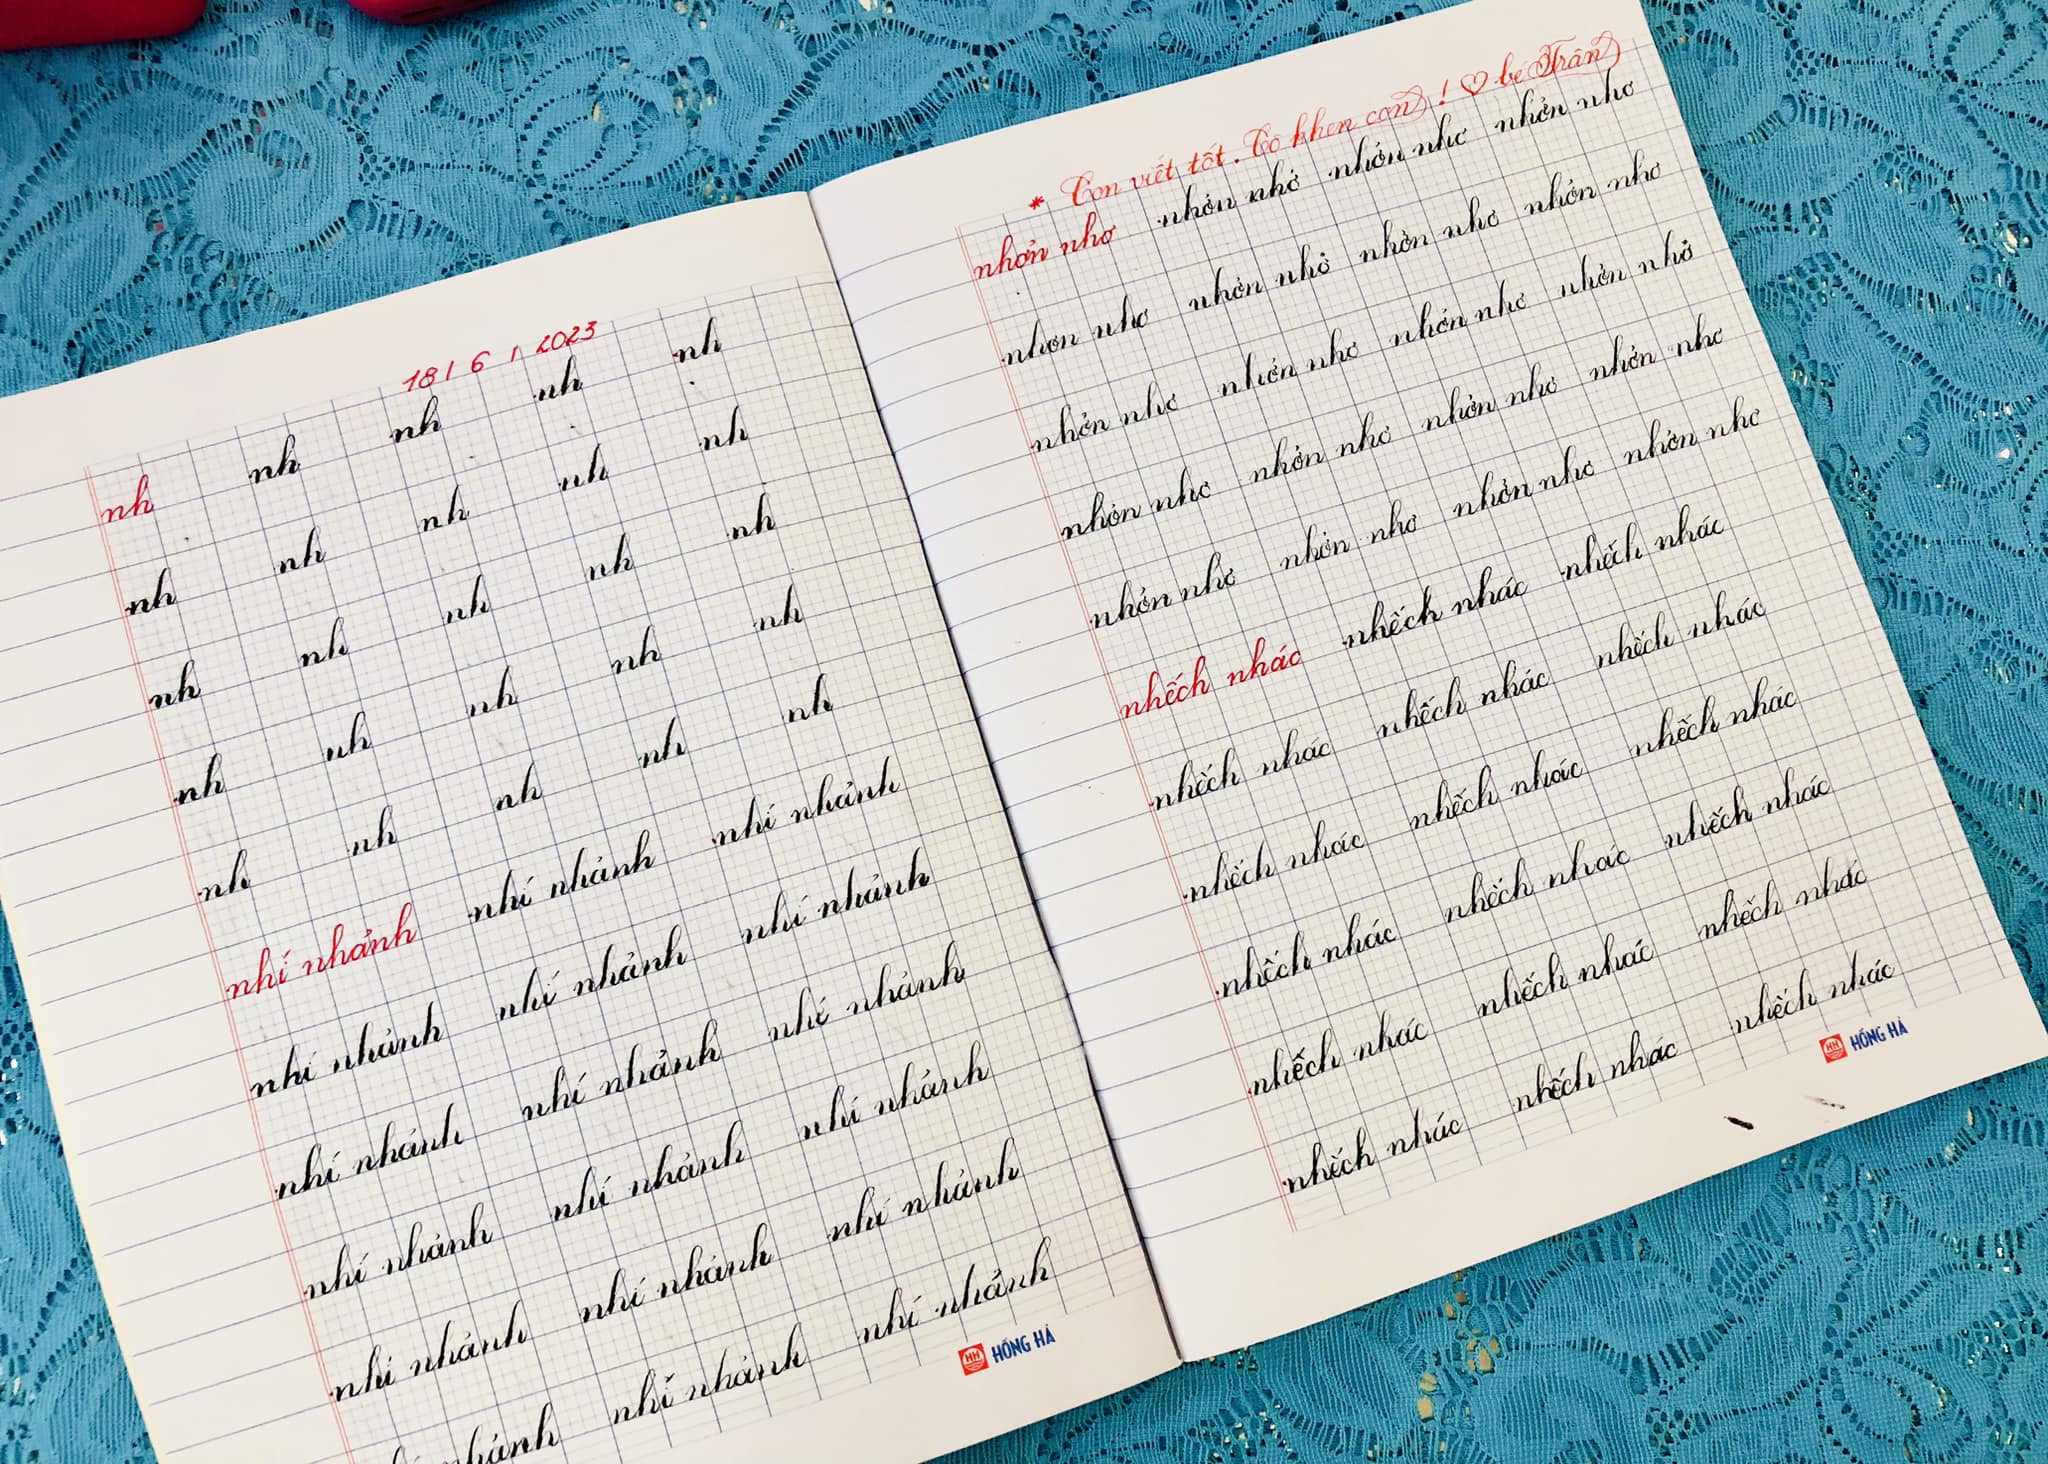 18/6/2023
nh nh nh nh nh
nh nh nh nh nh
nh nh nh nh nh
nh nh nh nh nh
nh nh nh nh nh
nhí nhảnh nhí nhảnh nhí nhảnh
nhí nhảnh nhí nhảnh nhí nhảnh
nhí nhảnh nhí nhảnh nhí nhảnh
nhí nhảnh nhí nhảnh nhí nhảnh
nhí nhảnh nhí nhảnh nhí nhảnh
nhảnh nhí nhảnh nhí nhảnh
HỒNG HÀ
* Con viết tốt. Cô khen con! ♡ bé Trân
nhởn nhơ nhởn nhở nhởn nhơ nhởn nhơ
nhơn nhơ nhởn nhở nhởn nhơ nhởn nhơ
nhởn nhơ nhởn nhơ nhởn nhơ nhởn nhở
nhởn nhơ nhởn nhơ nhởn nhơ nhởn nhơ
nhởn nhơ nhởn nhơ nhởn nhơ nhởn nhơ
nhếch nhác nhếch nhác nhếch nhác
nhếch nhác nhếch nhác nhếch nhác
nhếch nhác nhếch nhác nhếch nhác
nhếch nhác nhếch nhác nhếch nhác
nhếch nhác nhếch nhác nhếch nhác
nhếch nhác nhếch nhác nhếch nhác
HỒNG HÀ